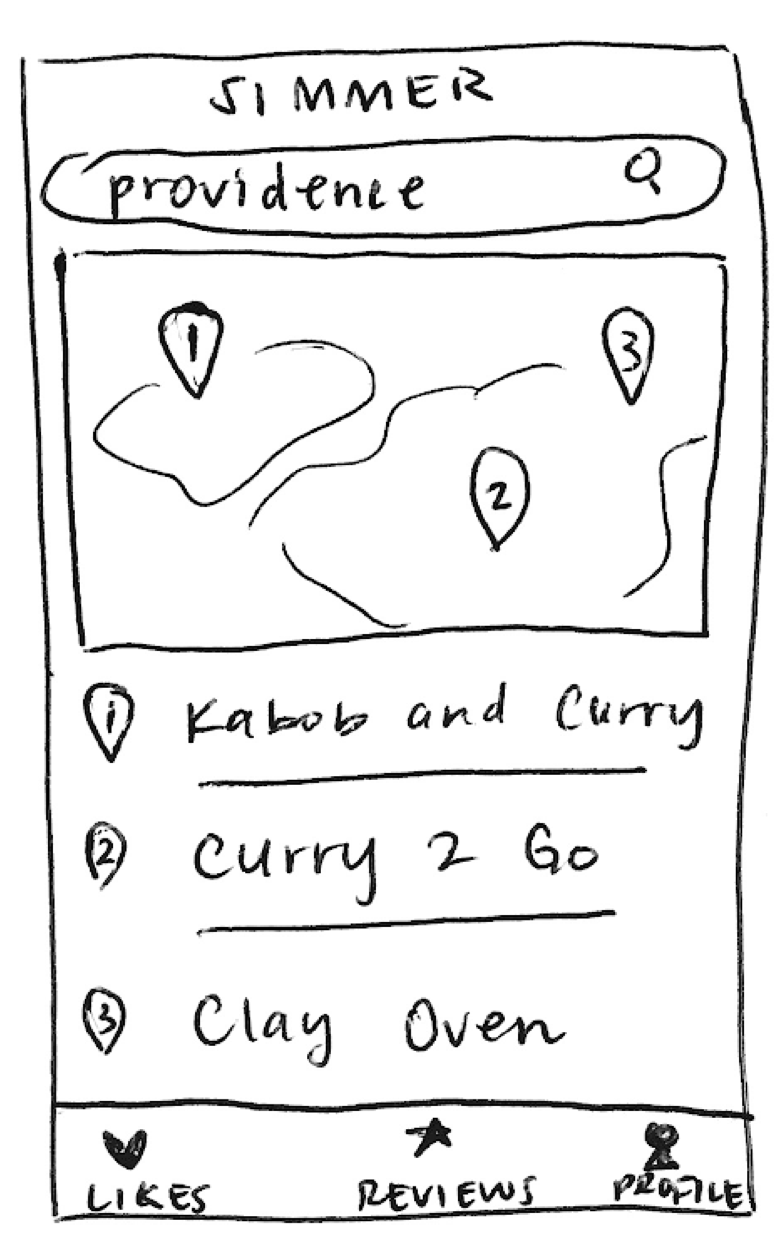 SIMMER
providence
1
3
2
1 Kabob and Curry
2 Curry 2 Go
3 Clay Oven
LIKES REVIEWS PROFILE